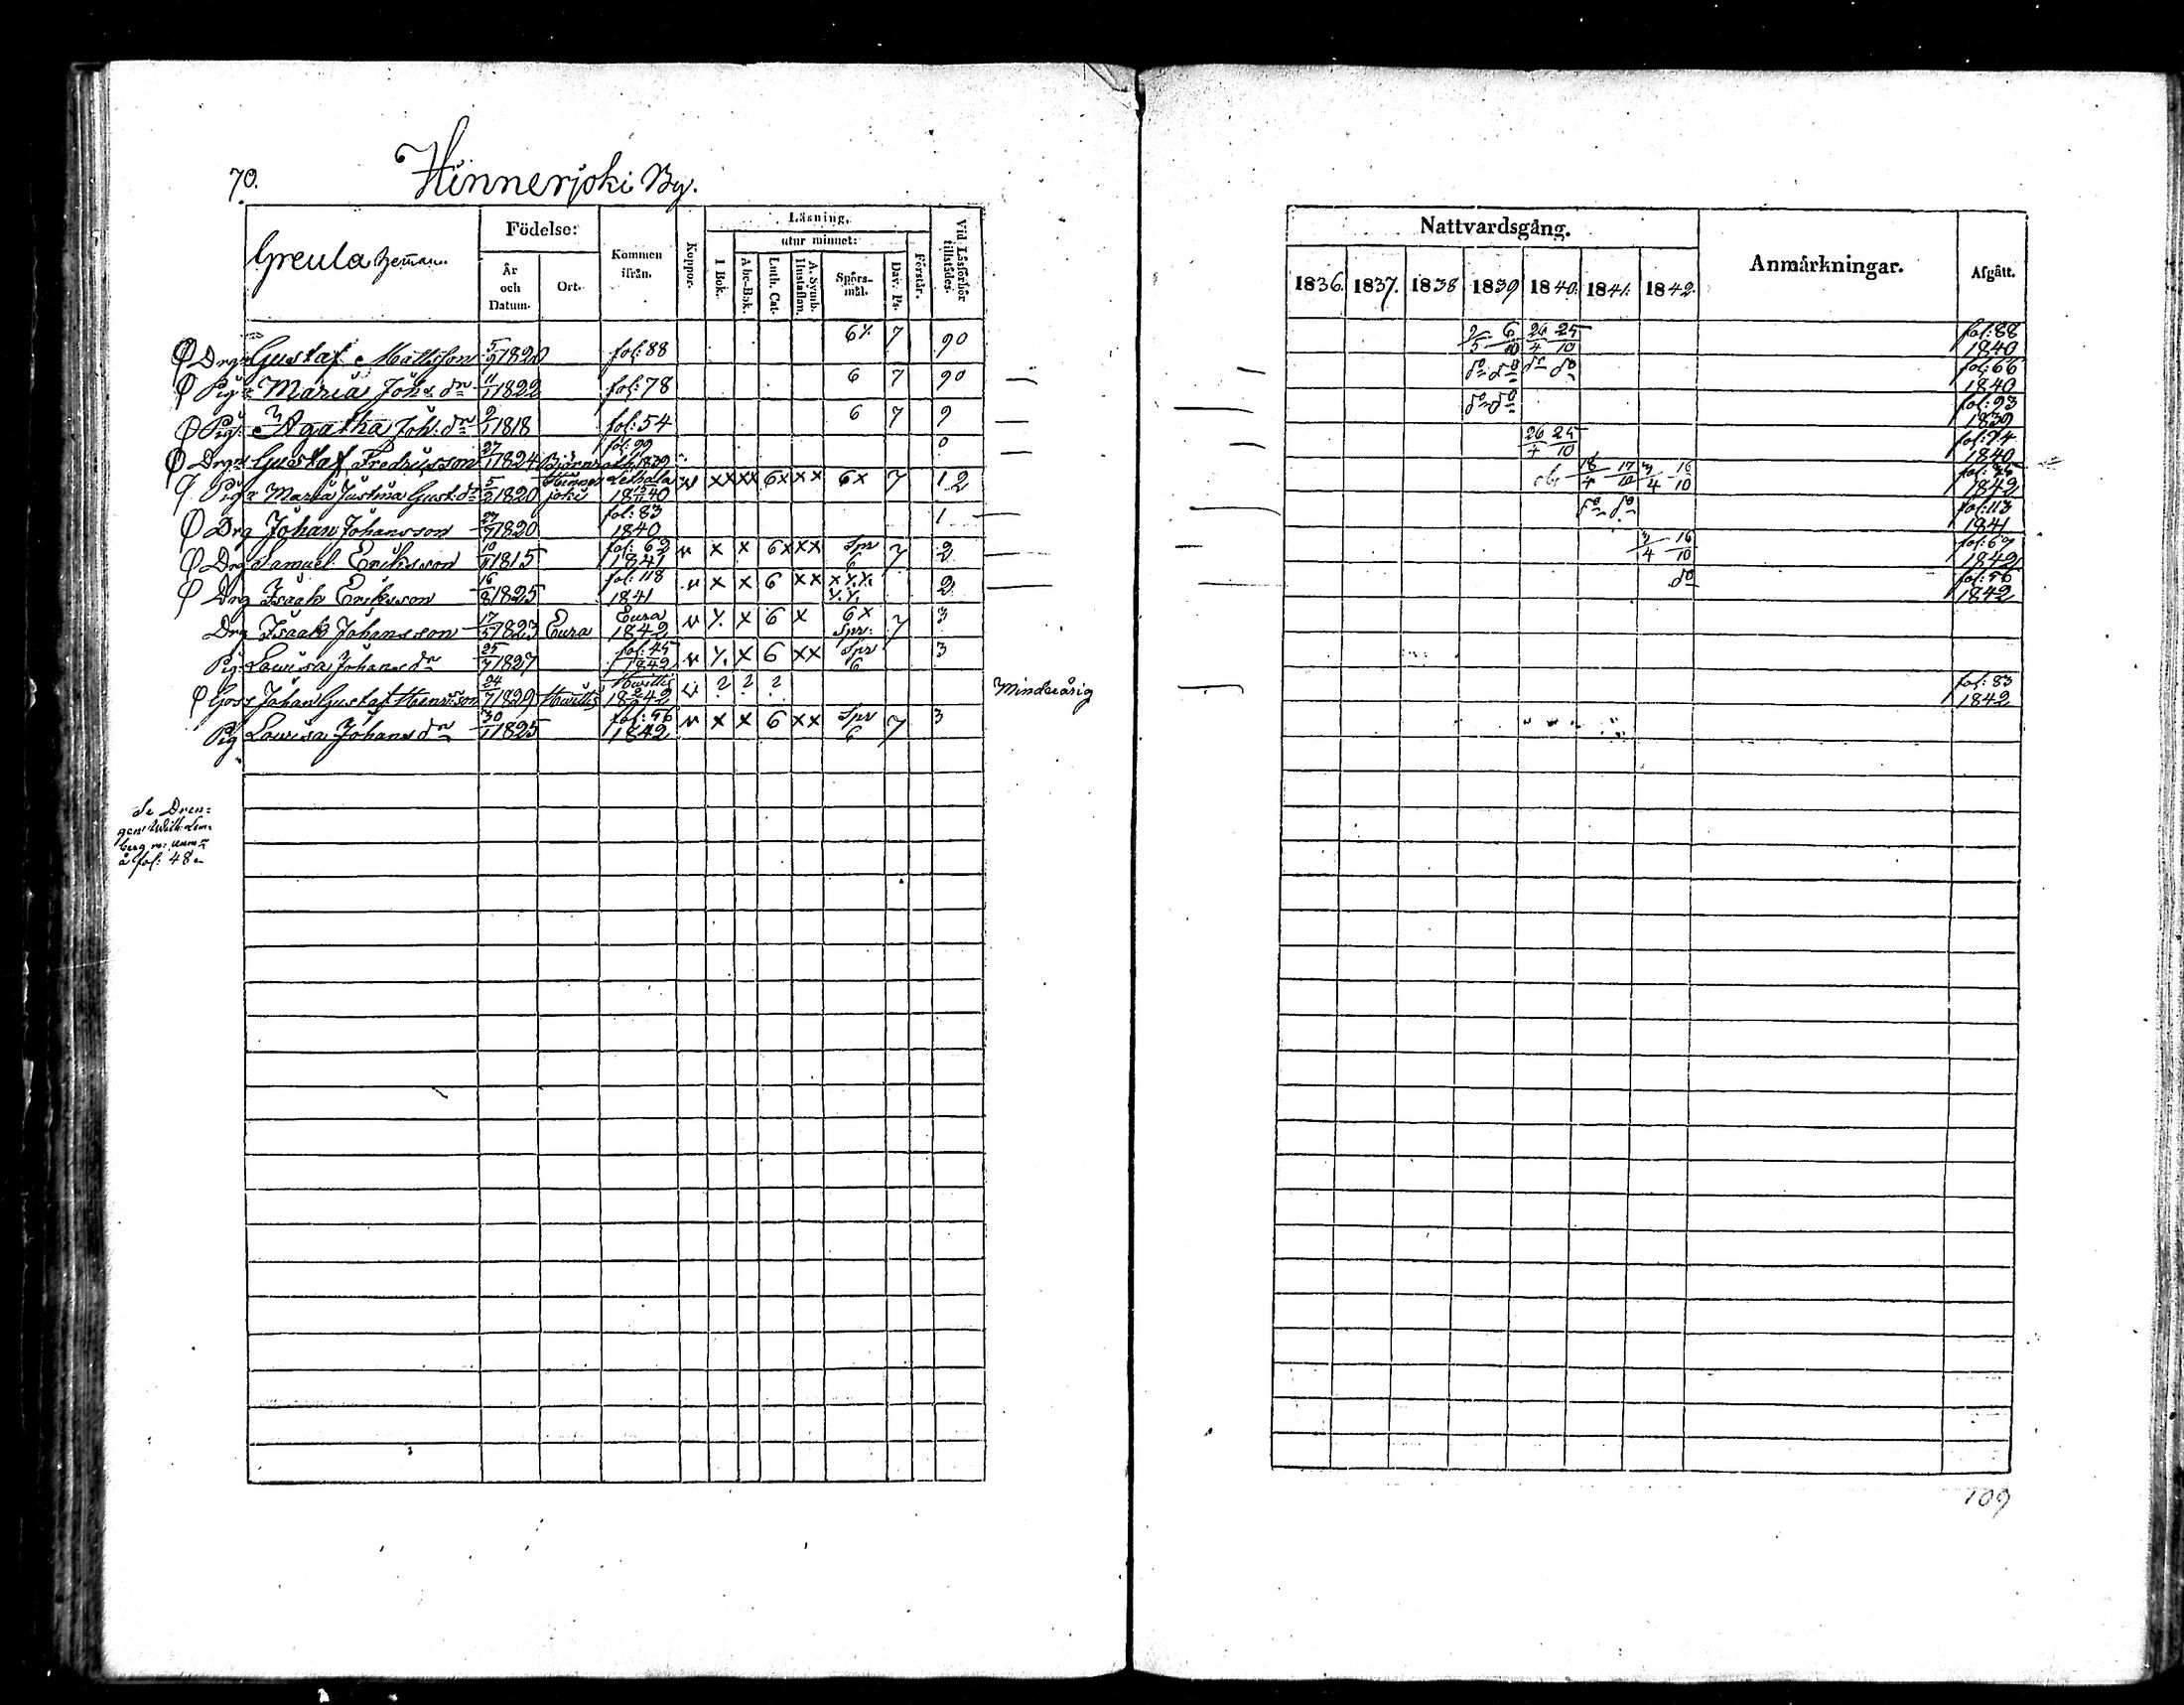 70. Hinnerjoki By.
Greula heman.
Födelse:
År och Datum.
Ort.
Kommen ifrån.
Koppor.
Läsning.
I Bok.
utur minnet:
Abc-Bok.
Luth. Cat.
A. Symb. Hustaflan.
Spörs-mål.
Dav. Ps.
Förstår.
Vid Läsförhör tillstädes.
Nattvardsgång.
1836. 1837. 1838 1839 1840. 1841. 1842.
Anmärkningar.
Afgått.
Drgn Gustaf Mattsson 5/9 1820 fol: 88 6 7 90 26/4 25/10 fol: 88 1840
Pig: Maria Joh: dr 11/1 1822 fol: 78 6 7 90 do do do do fol: 66 1840
Pig: Agatha Joh: dr 2/1 1818 fol: 54 6 7 9 do do fol: 93 1839
Drgn Gustaf Fredricsson 27/1 1824 fol: 99 1839 0 26/4 25/10 fol: 74 1840
Piga Maria Justina Gust: dr 5/2 1820 Hinnerjoki Lethala 1840 x x x x 6 x x x 6 x 7 12 18/4 17/10 3/4 16/10 1842
Drg Johan Johansson 27/9 1820 fol: 83 1840 1 do do fol: 113 1841
Drg Samuel Ericksson 1815 fol: 62 1841 x x 6 x x x Spr 6 7 2 3/4 16/10 fol: 67 1842
Drg Isaak Ericksson 16/8 1825 fol: 118 1841 x x 6 x x 2 do fol: 56 1842
Drg Isaak Johansson 17/5 1823 Eura Eura 1842 x 6 x 6 x Spr: 7 3
Pig: Lovisa Johans dr 25/7 1827 fol: 45 1842 x 6 x x Spr 6 3
Goss Johan Gustaf Henricsson 24/7 1829 Hvittis Hvittis 1842 2 2 2 Minderårig fol: 83 1842
Pig Lovisa Johans dr 30/1 1825 fol: 56 1842 x x 6 x x Spr 6 7 3
Se Dren-
gen Wilh: Lem-
berg m:
å fol: 48
109